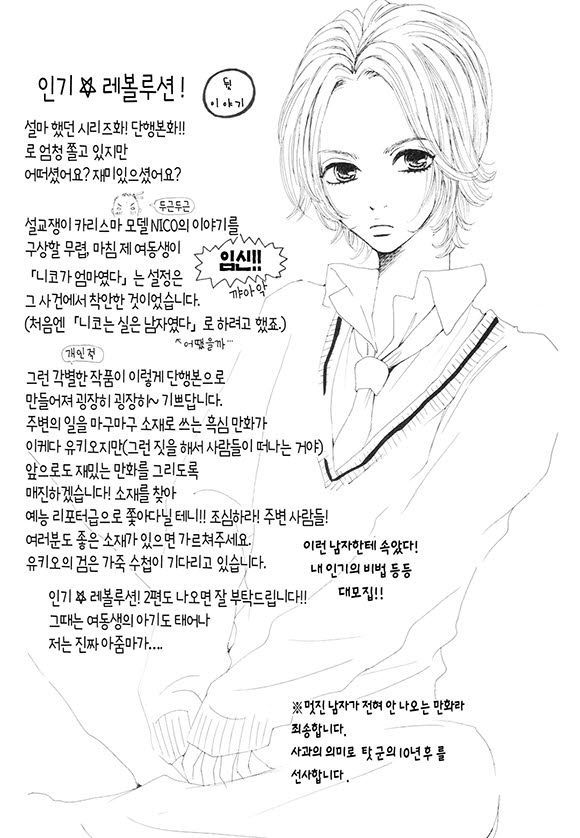 인기 ☆ 레볼루션!
뒷
이야기
설마 했던 시리즈화! 단행본화!!
로 엄청 쫄고 있지만
어떠셨어요? 재미있으셨어요?
두근두근
설교쟁이 카리스마 모델 NICO의 이야기를
구상할 무렵, 마침 제 여동생이
임신!!
꺄아악
「니코가 엄마였다」는 설정은
그 사건에서 착안한 것이었습니다.
(처음엔 「니코는 실은 남자였다」로 하려고 했죠.)
^어땠을까…
개인적
그런 각별한 작품이 이렇게 단행본으로
만들어져 굉장히 굉장히~ 기쁘답니다.
주변의 일을 마구마구 소재로 쓰는 흑심 만화가
이케다 유키오지만(그런 짓을 해서 사람들이 떠나는 거야)
앞으로도 재밌는 만화를 그리도록
매진하겠습니다! 소재를 찾아
예능 리포터급으로 쫓아다닐 테니!! 조심하라! 주변 사람들!
여러분도 좋은 소재가 있으면 가르쳐주세요.
유키오의 검은 가죽 수첩이 기다리고 있습니다.
이런 남자한테 속았다!
내 인기의 비법 등등
대모집!!
인기 ☆ 레볼루션! 2편도 나오면 잘 부탁드립니다!!
그때는 여동생의 아기도 태어나
저는 진짜 아줌마가....
※멋진 남자가 전혀 안 나오는 만화라
죄송합니다.
사과의 의미로 탓 군의 10년 후를
선사합니다.